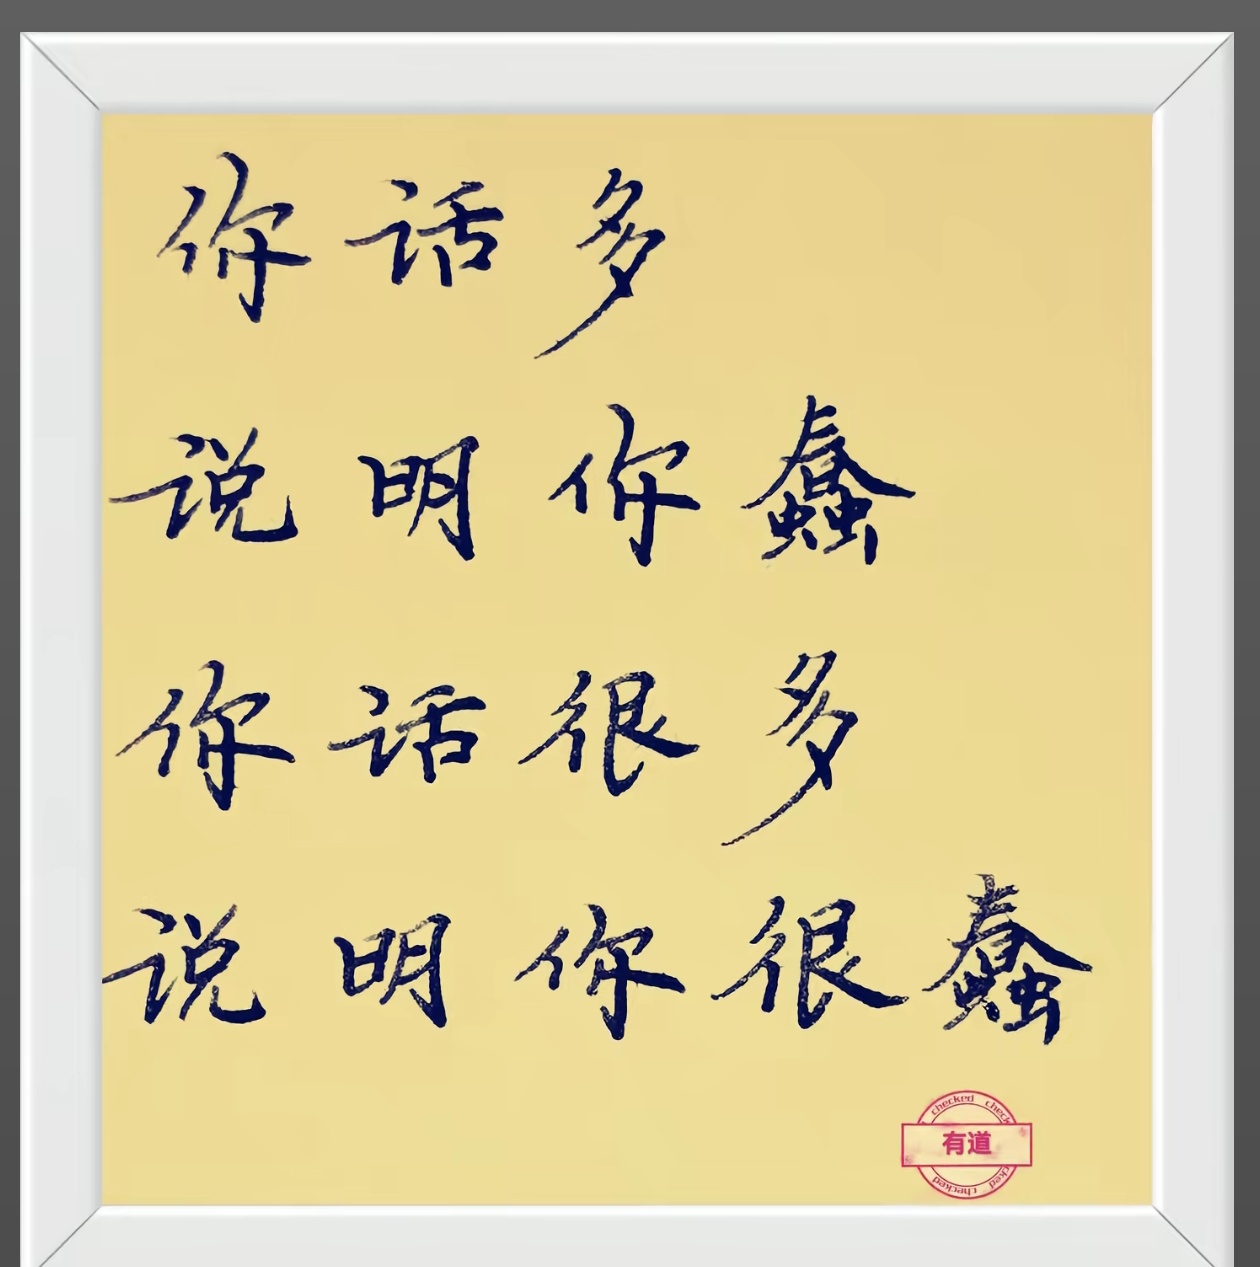 你话多
说明你蠢
你话很多
说明你很蠢
checked check
有道
cked checked